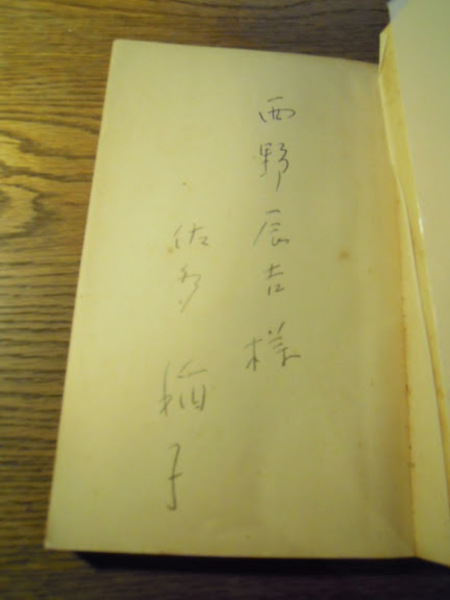 西野辰吉様
佐多稲子